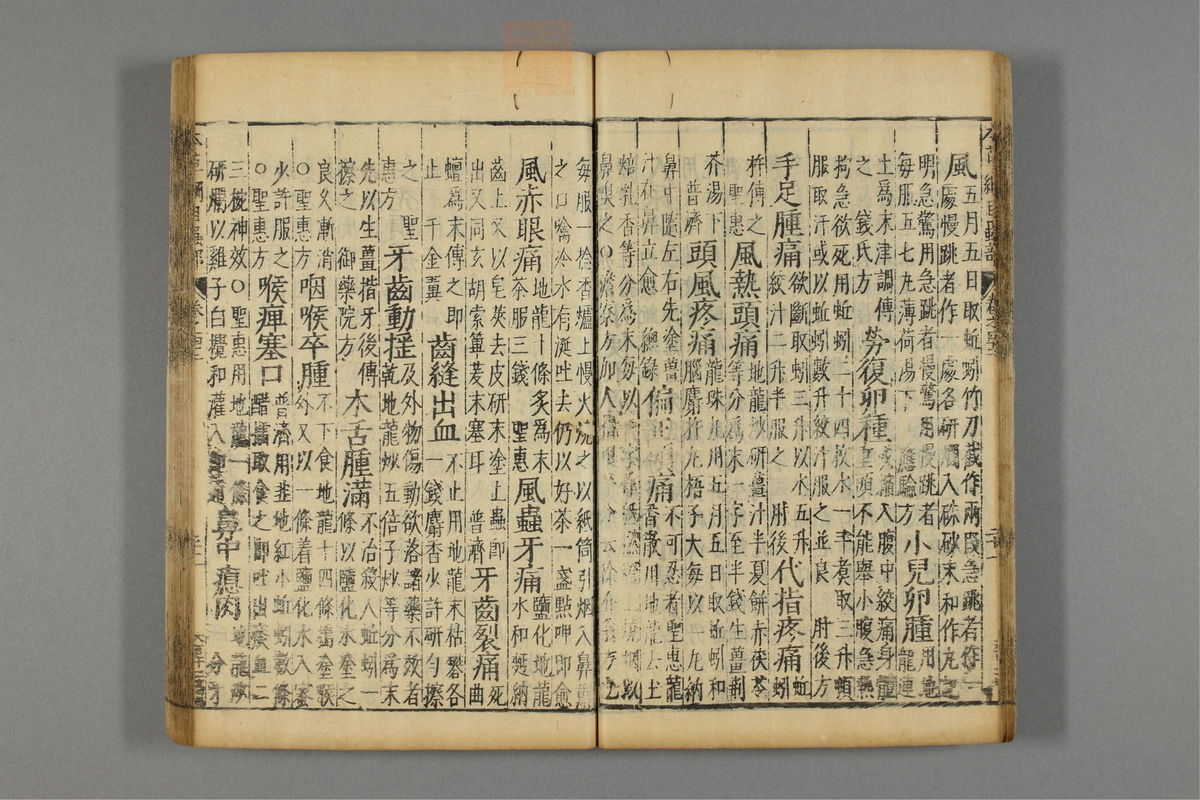 風五月五日取蚯蚓竹刀截作兩段急跳者作一
處慢跳者作一處各研爛入硃砂末和作丸記
明急驚用急跳者慢驚用慢跳者
每服五七丸薄荷湯下 應驗方
小兒卵腫用地龍連
土爲末津調傅
之 錢氏方
勞復卵腫或縮入腹中絞痛身體
重頭不能舉小腹急熱
拘急欲死用蚯蚓二十四枚水一斗煑取三升頓
服取汗或以蚯蚓數升絞汁服之並良 肘後方
手足腫痛欲斷取蚓三升以水五升
絞汁二升半服之 肘後
代指疼痛蚯蚓
杵傅之
聖惠
風熱頭痛地龍炒研薑汁半夏餅赤茯苓
等分爲末一字至半錢生薑荆
芥湯下
普濟
頭風疼痛龍珠丸用五月五日取蚯蚓和
腦麝杵丸梧子大每以一丸納
鼻中隨左右先塗薑
汁在鼻立愈 總錄
偏正頭痛不可忍者聖惠龍
香散用地龍去土
焙乳香等分爲末每以一字作紙撚燈上燒烟以
鼻嗅之○澹寮方加人指甲等分云徐介翁方也
每服一捻香爐上慢火燒之以紙筒引烟入鼻熏
之口噙冷水有涎吐去仍以好茶一盞點呷即愈
風赤眼痛地龍十條炙爲末
茶服三錢 聖惠
風蟲牙痛鹽化地龍
水和麪納
齒上又以皂莢去皮研末塗上蟲即
出又同玄胡索蓽茇末塞耳 普濟
牙齒裂痛死
曲
蟮爲末傅之即
止 千金翼
齒縫出血不止用地龍末枯礬各
一錢麝香少許研勻擦
之 聖
惠方
牙齒動搖及外物傷動欲落諸藥不效者
乾地龍炒五倍子炒等分爲末
先以生薑揩牙後傅
擦之 御藥院方
木舌腫滿不治殺人蚯蚓一
條以鹽化水塗之
良久漸消
○聖惠方
咽喉卒腫不下食地龍十四條搗塗喉
外又以一條着鹽化水入蜜
少許服之
○聖惠方
喉痺塞口普濟用韭地紅小蚯蚓數條
醋擂取食之即吐出痰血二
三椀神效○聖惠用地龍一條
研爛以雞子白攪和灌入即通
鼻中瘜肉地龍炒
一分牙